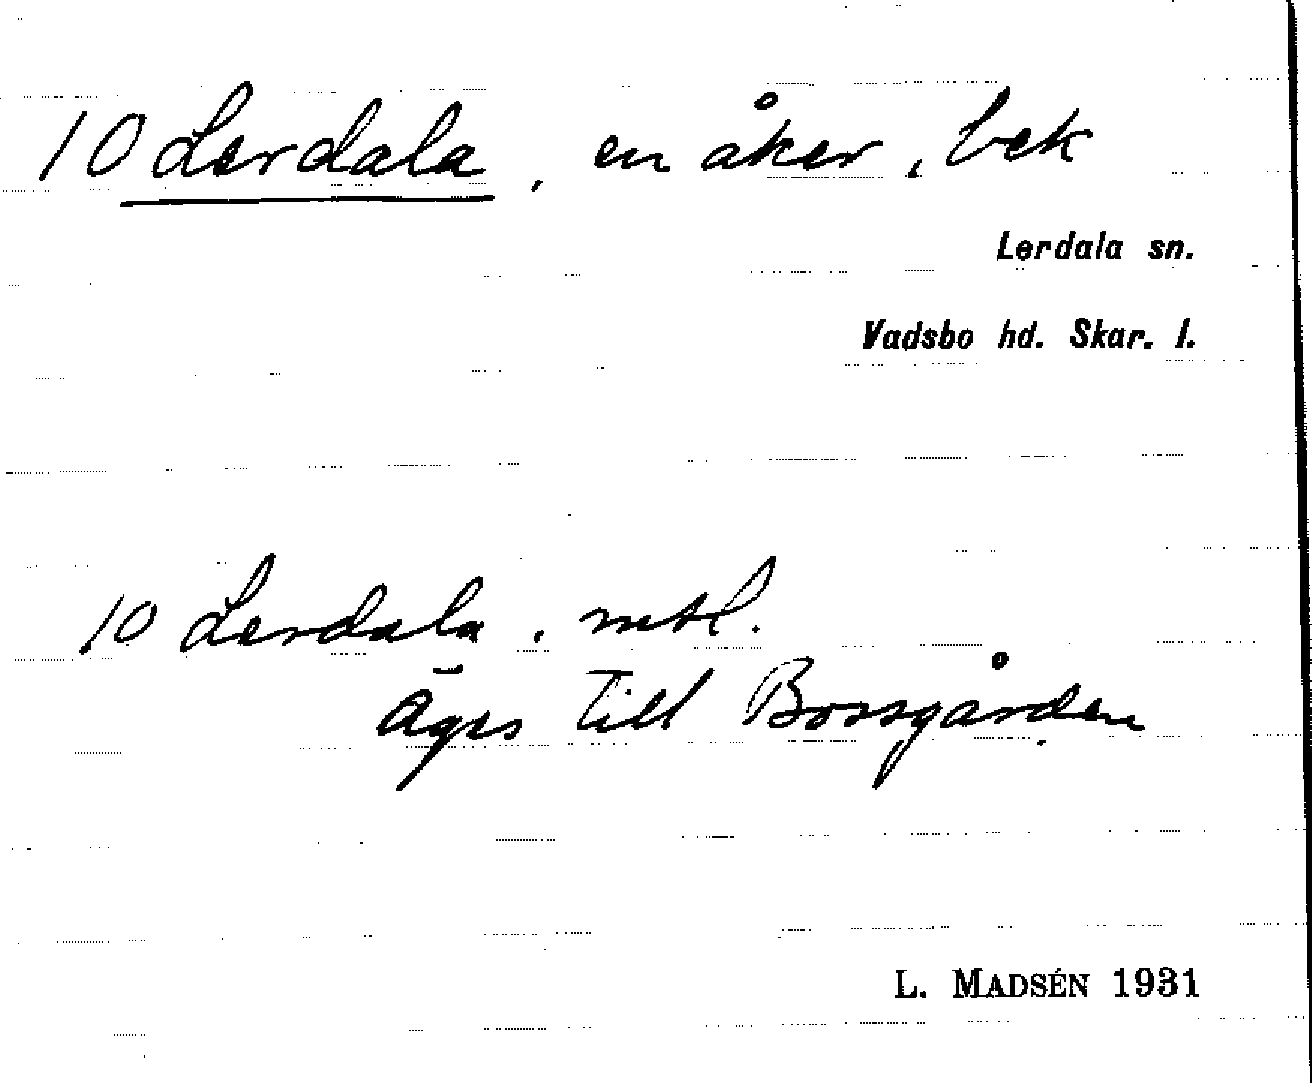 10 Lerdala, en åker, bek
Lerdala sn.
Vadsbo hd. Skar. l.
10 Lerdala, mtl.
Äges till Bossgården
L. MADSÉN 1931